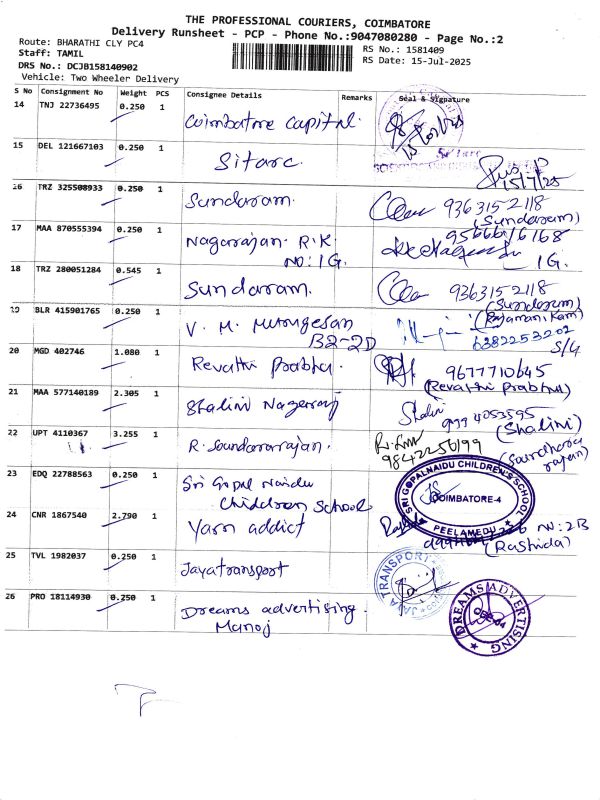 THE PROFESSIONAL COURIERS, COIMBATORE
Delivery Runsheet - PCP - Phone No.:9047080280 - Page No.:2
Route: BHARATHI CLY PC4
RS No.: 1581409
Staff: TAMIL
RS Date: 15-Jul-2025
DRS No.: DCJB158140902
Vehicle: Two Wheeler Delivery
S No Consignment No Weight PCS Consignee Details Remarks Seal & Signature
14 TNJ 22736495 0.250 1 Coimbatore Capital.
15 DEL 121667103 0.250 1 Sitarc
15/7/25
16 TRZ 325508933 0.250 1 Sundaram. 9363152118
(Sundaram)
17 MAA 870555394 0.250 1 Nagarajan. R.K. 9566616168
NO: 1G. 1G.
18 TRZ 280051284 0.545 1 Sundaram. 9363152118
(Sundaram)
19 BLR 415901765 0.250 1 V. M. Murugesan
B2-2D 6382253202
S/G
20 MGD 402746 1.080 1 Revathi Prabhu. 9677710645
(Revathi Prabhu)
21 MAA 577140189 2.305 1 Shalini Nageraj Shalini
(Shalini)
22 UPT 4110367 3.255 1 R. Soundararajan. 9842256199
(Soundhara
rajan)
23 EDQ 22788563 0.250 1 Sri Gopal Naidu
Children School
SRI GOPALNAIDU CHILDREN'S SCHOOL
COIMBATORE-4
PEELAMEDU
24 CNR 1867540 2.790 1 Yarn addict NO: 2B
(Rashida)
25 TVL 1982037 0.250 1 Jayatransport
JAYA TRANSPORT
26 PRO 18114930 0.250 1 Dreams advertising.
Manoj
DREAMS ADVERTISING